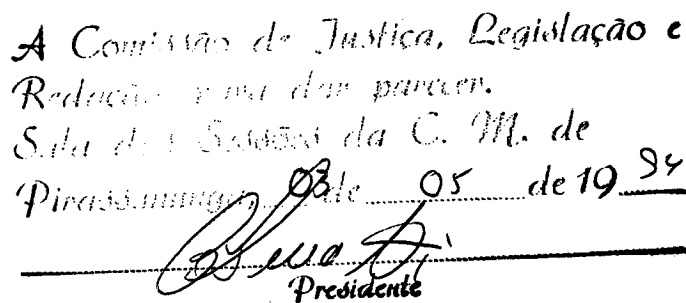 A Comissão de Justiça, Legislação e
Redação para dar parecer.
Sala das Sessões da C. M. de
Pirassununga, 03 de 05 de 19 94
Presidente